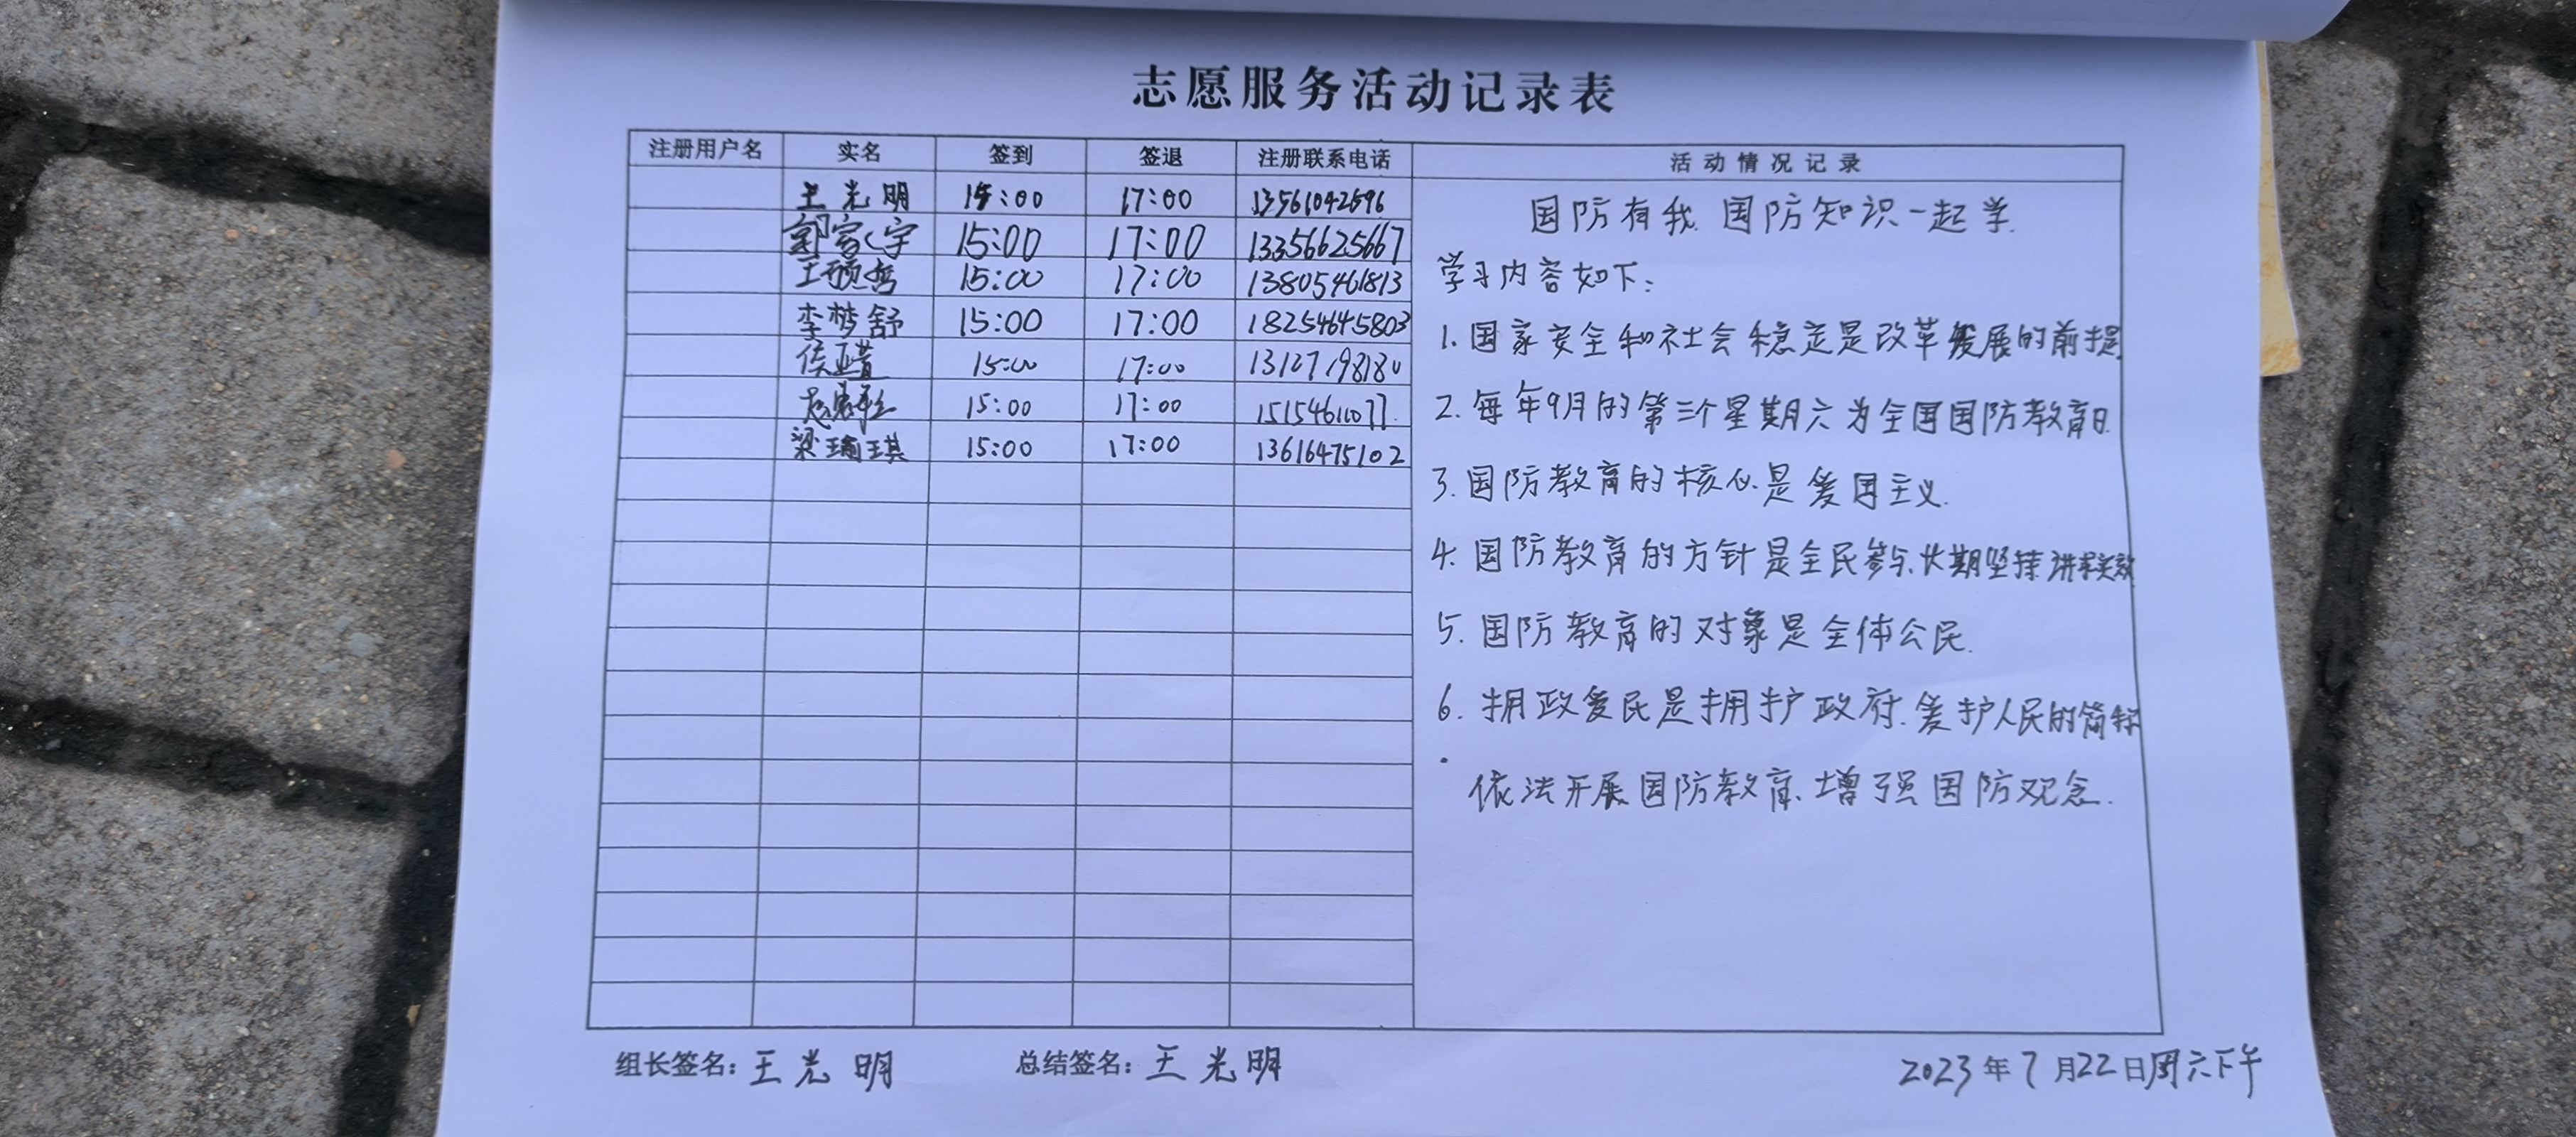 志愿服务活动记录表
注册用户名 实名 签到 签退 注册联系电话 活动情况记录
王光明 15:00 17:00 13561042696
郭家宁 15:00 17:00 13356625667
15:00 17:00 13805461813
李梦舒 15:00 17:00 18254645803
15:00 17:00 13127198180
15:00 17:00
梁瑜琪 15:00 17:00 13616475102
国防有我 国防知识一起学.
学习内容如下:
1. 国家安全和社会稳定是改革发展的前提
2. 每年9月的第三个星期六为全国国防教育日.
3. 国防教育的核心是爱国主义.
4. 国防教育的方针是全民参与、长期坚持 讲求实效
5. 国防教育的对象是全体公民.
6. 拥政爱民是拥护政府、爱护人民的简称
依法开展国防教育、增强国防观念.
组长签名:王光明 总结签名:王光明 2023年7月22日周六下午